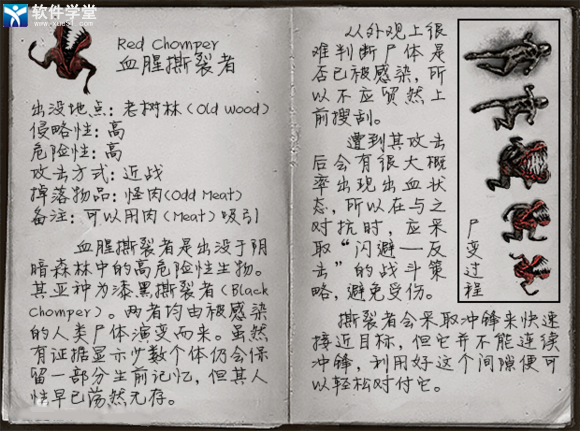 软件学堂
www.xue51.com
Red Chomper
血腥撕裂者
出没地点:老树林(Old Wood)
侵略性:高
危险性:高
攻击方式:近战
掉落物品:怪肉(Odd Meat)
备注:可以用肉(Meat)吸引
血腥撕裂者是出没于阴
暗森林中的高危险性生物。
其亚种为漆黑撕裂者(Black
Chomper)。两者均由被感染
的人类尸体演变而来。虽然
有证据显示少数个体仍会保
留一部分生前记忆,但其人
性早已荡然无存。
从外观上很
难判断尸体是
否已被感染,所
以不应贸然上
前搜刮。
遭到其攻击
后会有很大概
率出现出血状
态,所以在与之
对抗时,应采
取“闪避—反
击”的战斗策
略,避免受伤。
尸变过程
撕裂者会采取冲锋来快速
接近目标,但它并不能连续
冲锋,利用好这个间隙便可
以轻松对付它。